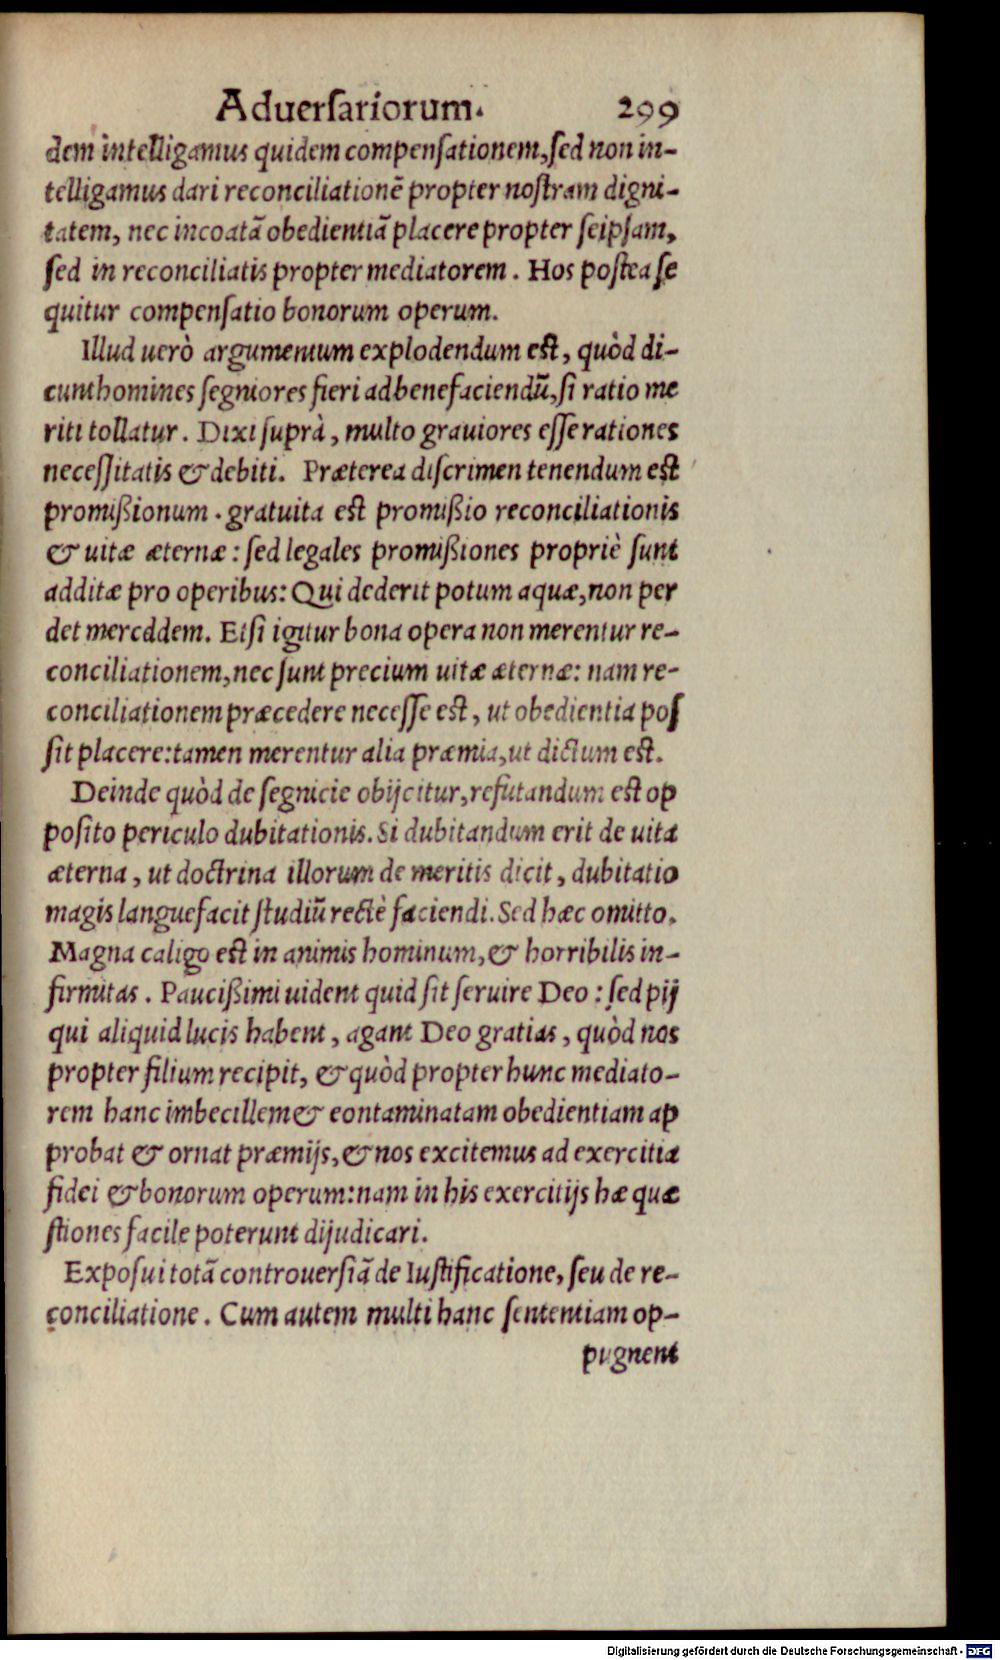 Aduersariorum. 299
dem intelligamus quidem compensationem, sed non in-
telligamus dari reconciliationē propter nostram digni-
tatem, nec incoatā obedientiā placere propter seipsam,
sed in reconciliatis propter mediatorem. Hos postea se
quitur compensatio bonorum operum.
Illud uerò argumentum explodendum est, quòd di-
cunt homines segniores fieri ad benefaciendū, si ratio me
riti tollatur. Dixi suprà, multo grauiores esse rationes
necessitatis & debiti. Præterea discrimen tenendum est
promißionum. gratuita est promißio reconciliationis
& uitæ æternæ: sed legales promißiones propriè sunt
additæ pro operibus: Qui dederit potum aquæ, non per
det mercddem. Etsi igitur bona opera non merentur re-
conciliationem, nec sunt precium uitæ æternæ: nam re-
conciliationem præcedere necesse est, ut obedientia pos
sit placere: tamen merentur alia præmia, ut dictum est.
Deinde quòd de segnicie obijcitur, refutandum est op
posito periculo dubitationis. Si dubitandum erit de uita
æterna, ut doctrina illorum de meritis dicit, dubitatio
magis languefacit studiū rectè faciendi. Sed hæc omitto.
Magna caligo est in animis hominum, & horribilis in-
firmitas. Paucißimi uident quid sit seruire Deo: sed pij
qui aliquid lucis habent, agant Deo gratias, quòd nos
propter filium recipit, & quòd propter hunc mediato-
rem hanc imbecillem & eontaminatam obedientiam ap
probat & ornat præmijs, & nos excitemus ad exercitia
fidei & bonorum operum: nam in his exercitijs hæ quæ
stiones facile poterunt dijudicari.
Exposui totā controuersiā de Iustificatione, seu de re-
conciliatione. Cum autem multi hanc sententiam op-
pugnent
Digitalisierung gefördert durch die Deutsche Forschungsgemeinschaft - DFG